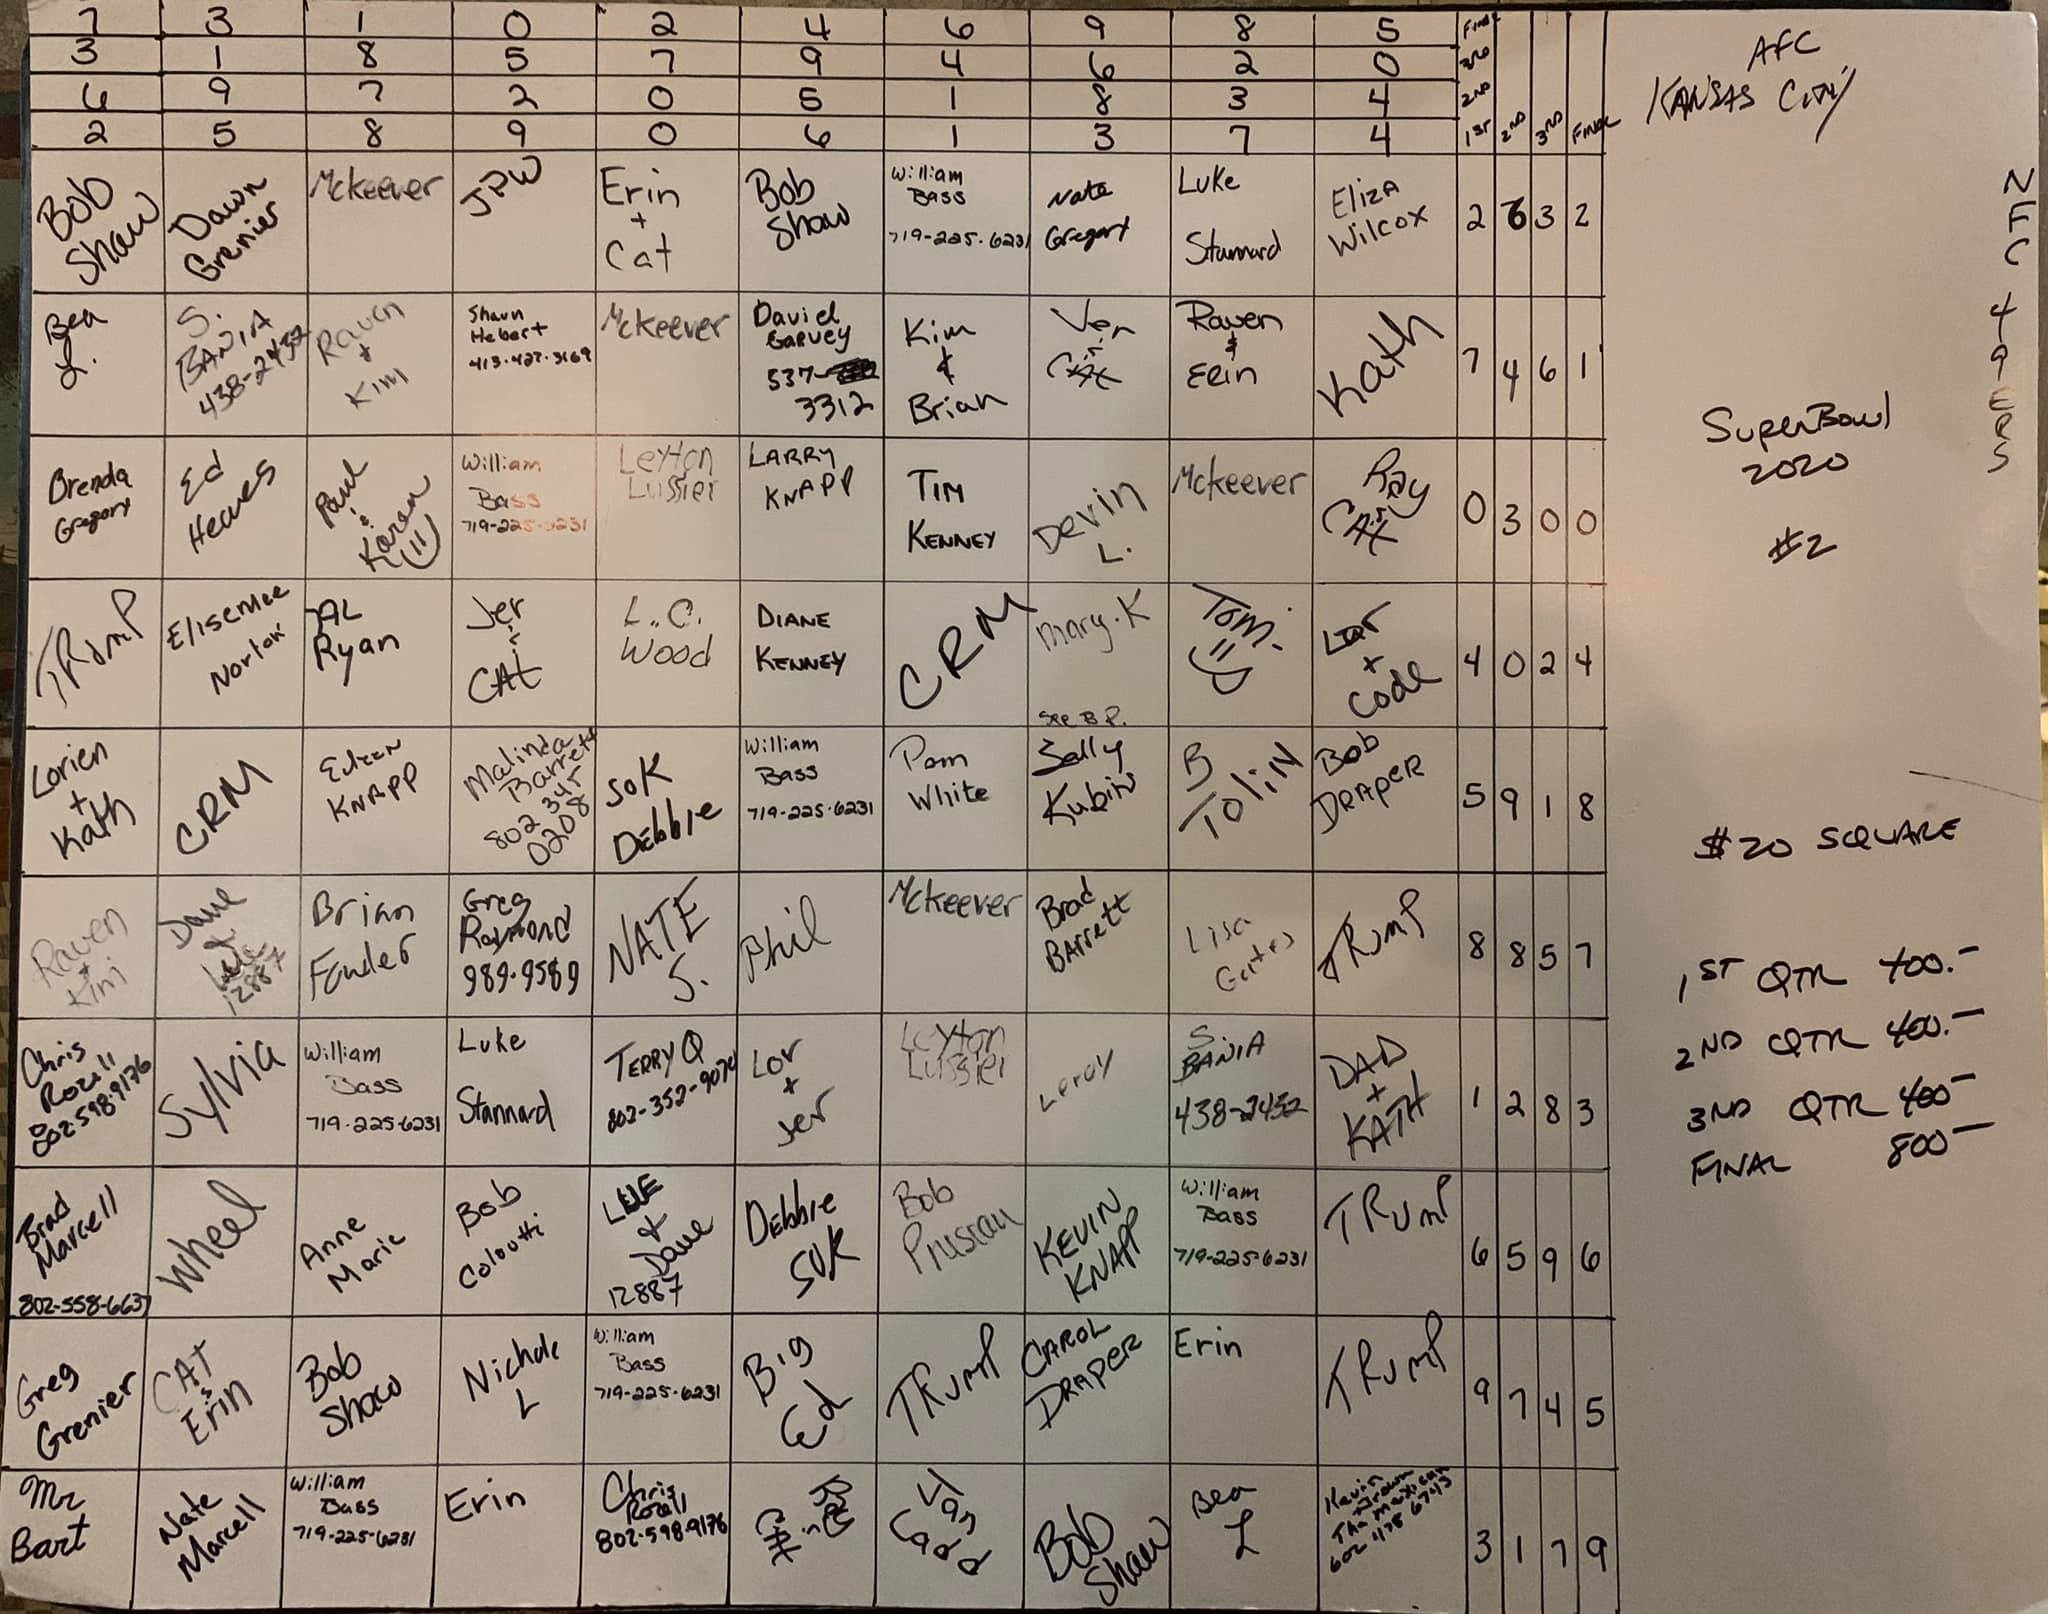 7 3 1 0 2 4 6 9 8 5 FINAL
3 1 8 5 7 9 4 6 2 0 3RD
6 9 7 2 0 5 1 8 3 4 2ND
2 5 8 9 0 6 1 3 7 4 1ST 2ND 3RD FINAL
AFC
KANSAS CITY
NFC 49ERS
SUPERBOWL
2020
#2
$20 SQUARE
1ST QTR 400.-
2ND QTR 400.-
3ND QTR 400-
FINAL 800-
Bob Shaw
Dawn Grenier
McKeever
JPW
Erin + Cat
Bob Shaw
William Bass 719-225-6231
Nate Gregory
Luke Stannard
Eliza Wilcox
2 6 3 2
Bea L.
S. BANIA 438-2432
Raven + Kim
Shaun Hebert 413-427-3169
McKeever
David Garvey 537- 3312
Kim & Brian
Raven & Erin
Kath
7 4 6 1
Brenda Gregory
Ed Heaves
Paul & Karen (11)
William Bass 719-225-6231
Leyton Lussier
LARRY KNAPP
TIM KENNEY
Devin L.
McKeever
Ray & CAT
0 3 0 0
TRUMP
Norton
AL Ryan
Jer & CAT
L.C. Wood
DIANE KENNEY
CRM
Mary.K
See B.P.
Tom.
Lor + Code
4 0 2 4
Lorien + Kath
CRM
KNAPP
Malinda Barrett 802 345 0208
SUK DEBBIE
William Bass 719-225-6231
Pam White
Sally Kubin
B TOLIN
Bob DRAPER
5 9 1 8
Raven + Kim
Dave 12887
Brian Fowler
Greg Raymond 989-9589
NATE S.
Phil
McKeever
Brad Barrett
Lisa
TRUMP
8 8 5 7
Chris Rozell 802-598-9176
Sylvia
William Bass 719-225-6231
Luke Stannard
TERRY Q 802-352-9070
Lor + Jer
Leyton Lussier
Leroy
S. BANIA 438-2432
DAD + KATH
1 2 8 3
Brad Marcell 802-558-6637
Wheel
Anne Marie
Bob Coloutti
LUE & Dave 12887
DEBBIE SUK
Bob Prusian
KEVIN KNAPP
William Bass 719-225-6231
TRUMP
6 5 9 6
Greg Grenier
CAT & Erin
Bob Shaw
Nichole L
William Bass 719-225-6231
Big Ed
TRUMP
CAROL DRAPER
Erin
TRUMP
9 7 4 5
Mr Bart
Nate Marcell
William Bass 719-225-6231
Erin
Chris Rozell 802-598-9176
Ian Ladd
Bob Shaw
Bea L
Kevin Brown Tha mexican 602 478 6743
3 1 7 9